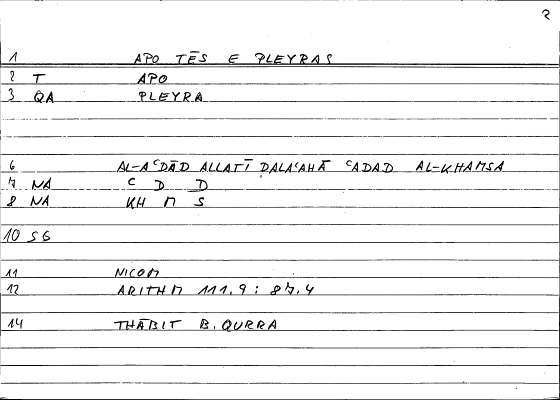 2
1 APO TĒS E PLEYRAS
2 T APO
3 QA PLEYRA
6 AL-AʿDĀD ALLATĪ ḌALAʿAHĀ ʿADAD AL-KHAMSA
7 NA ʿ D D
8 NA KH M S
10 S6
11 NICOM
12 ARITHM 111,9 : 87,4
14 THĀBIT B. QURRA